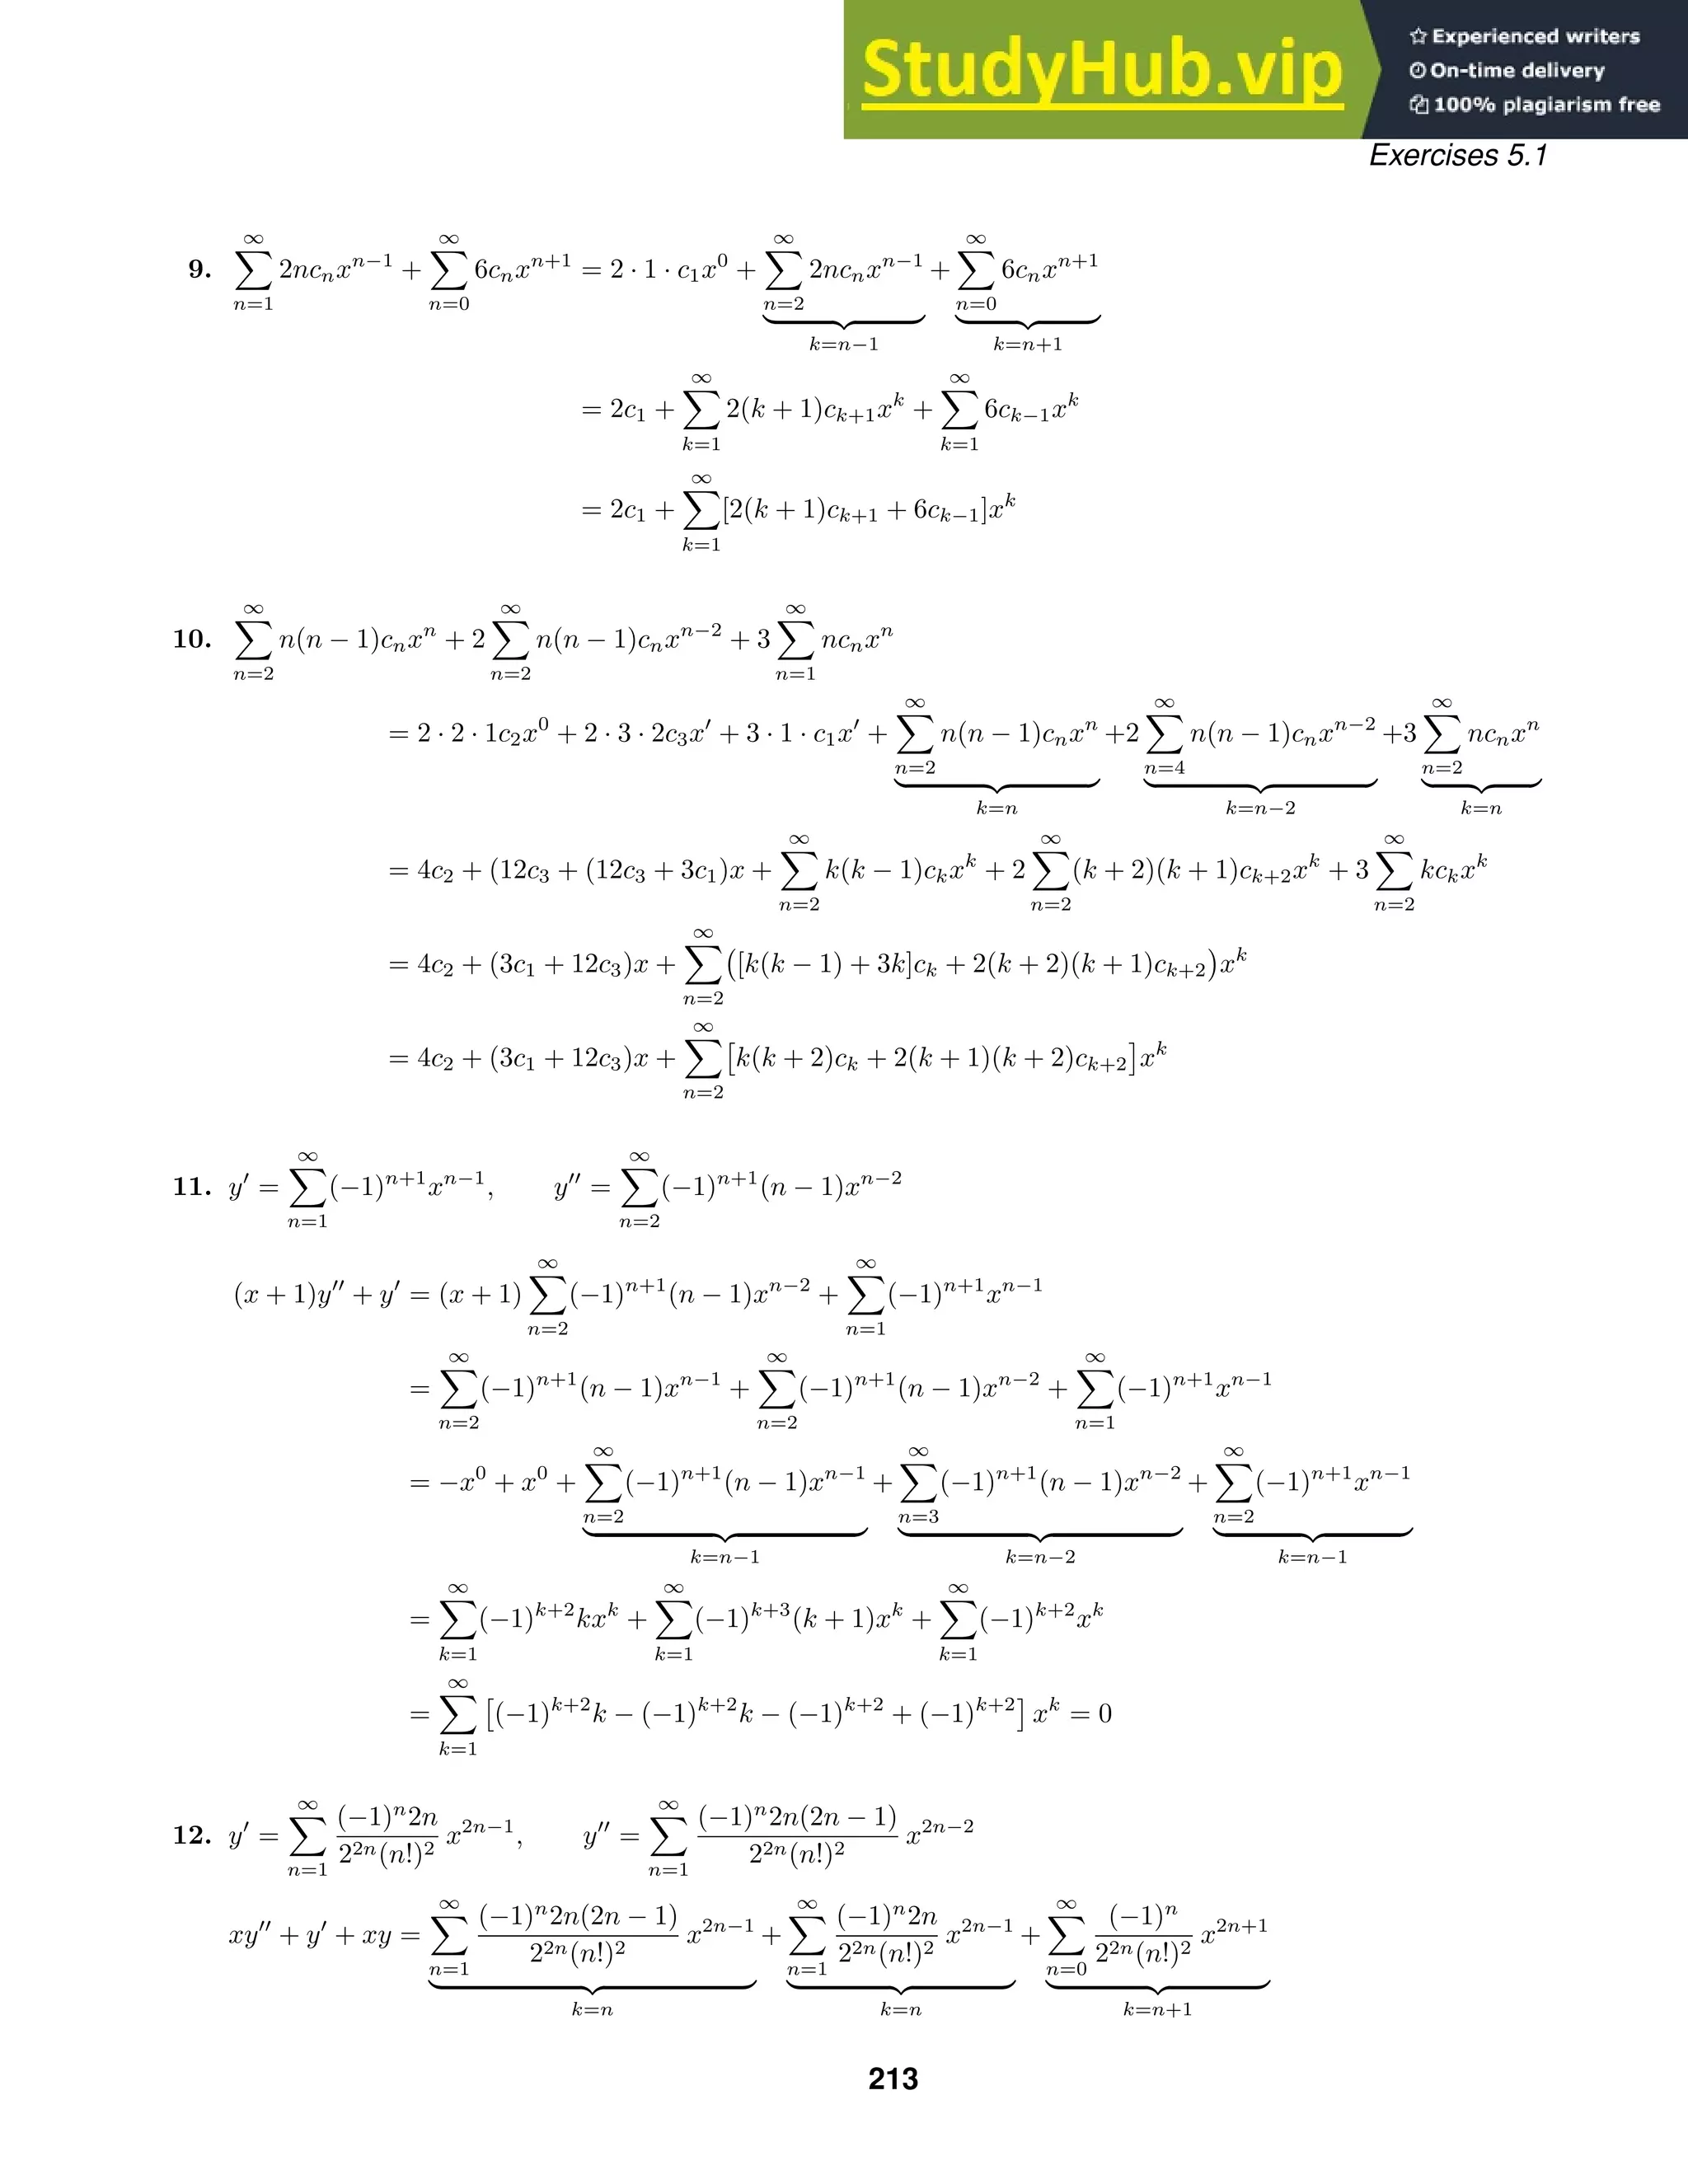 StudyHub.vip
☆ Experienced writers
On-time delivery
100% plagiarism free
Exercises 5.1
9. ∑_{n=1}^{∞} 2nc_n x^{n−1} + ∑_{n=0}^{∞} 6c_n x^{n+1} = 2 · 1 · c_1 x^0 + ∑_{n=2}^{∞} 2nc_n x^{n−1} (k=n−1) + ∑_{n=0}^{∞} 6c_n x^{n+1} (k=n+1)
= 2c_1 + ∑_{k=1}^{∞} 2(k + 1)c_{k+1} x^k + ∑_{k=1}^{∞} 6c_{k−1} x^k
= 2c_1 + ∑_{k=1}^{∞} [2(k + 1)c_{k+1} + 6c_{k−1}]x^k
10. ∑_{n=2}^{∞} n(n − 1)c_n x^n + 2 ∑_{n=2}^{∞} n(n − 1)c_n x^{n−2} + 3 ∑_{n=1}^{∞} nc_n x^n
= 2 · 2 · 1c_2 x^0 + 2 · 3 · 2c_3 x′ + 3 · 1 · c_1 x′ + ∑_{n=2}^{∞} n(n − 1)c_n x^n (k=n) +2 ∑_{n=4}^{∞} n(n − 1)c_n x^{n−2} (k=n−2) +3 ∑_{n=2}^{∞} nc_n x^n (k=n)
= 4c_2 + (12c_3 + (12c_3 + 3c_1)x + ∑_{n=2}^{∞} k(k − 1)c_k x^k + 2 ∑_{n=2}^{∞} (k + 2)(k + 1)c_{k+2} x^k + 3 ∑_{n=2}^{∞} kc_k x^k
= 4c_2 + (3c_1 + 12c_3)x + ∑_{n=2}^{∞} ([k(k − 1) + 3k]c_k + 2(k + 2)(k + 1)c_{k+2})x^k
= 4c_2 + (3c_1 + 12c_3)x + ∑_{n=2}^{∞} [k(k + 2)c_k + 2(k + 1)(k + 2)c_{k+2}]x^k
11. y′ = ∑_{n=1}^{∞} (−1)^{n+1} x^{n−1}, y″ = ∑_{n=2}^{∞} (−1)^{n+1}(n − 1)x^{n−2}
(x + 1)y″ + y′ = (x + 1) ∑_{n=2}^{∞} (−1)^{n+1}(n − 1)x^{n−2} + ∑_{n=1}^{∞} (−1)^{n+1} x^{n−1}
= ∑_{n=2}^{∞} (−1)^{n+1}(n − 1)x^{n−1} + ∑_{n=2}^{∞} (−1)^{n+1}(n − 1)x^{n−2} + ∑_{n=1}^{∞} (−1)^{n+1} x^{n−1}
= −x^0 + x^0 + ∑_{n=2}^{∞} (−1)^{n+1}(n − 1)x^{n−1} (k=n−1) + ∑_{n=3}^{∞} (−1)^{n+1}(n − 1)x^{n−2} (k=n−2) + ∑_{n=2}^{∞} (−1)^{n+1} x^{n−1} (k=n−1)
= ∑_{k=1}^{∞} (−1)^{k+2} kx^k + ∑_{k=1}^{∞} (−1)^{k+3}(k + 1)x^k + ∑_{k=1}^{∞} (−1)^{k+2} x^k
= ∑_{k=1}^{∞} [(−1)^{k+2} k − (−1)^{k+2} k − (−1)^{k+2} + (−1)^{k+2}] x^k = 0
12. y′ = ∑_{n=1}^{∞} (−1)^n 2n / 2^{2n}(n!)^2 x^{2n−1}, y″ = ∑_{n=1}^{∞} (−1)^n 2n(2n − 1) / 2^{2n}(n!)^2 x^{2n−2}
xy″ + y′ + xy = ∑_{n=1}^{∞} (−1)^n 2n(2n − 1) / 2^{2n}(n!)^2 x^{2n−1} (k=n) + ∑_{n=1}^{∞} (−1)^n 2n / 2^{2n}(n!)^2 x^{2n−1} (k=n) + ∑_{n=0}^{∞} (−1)^n / 2^{2n}(n!)^2 x^{2n+1} (k=n+1)
213